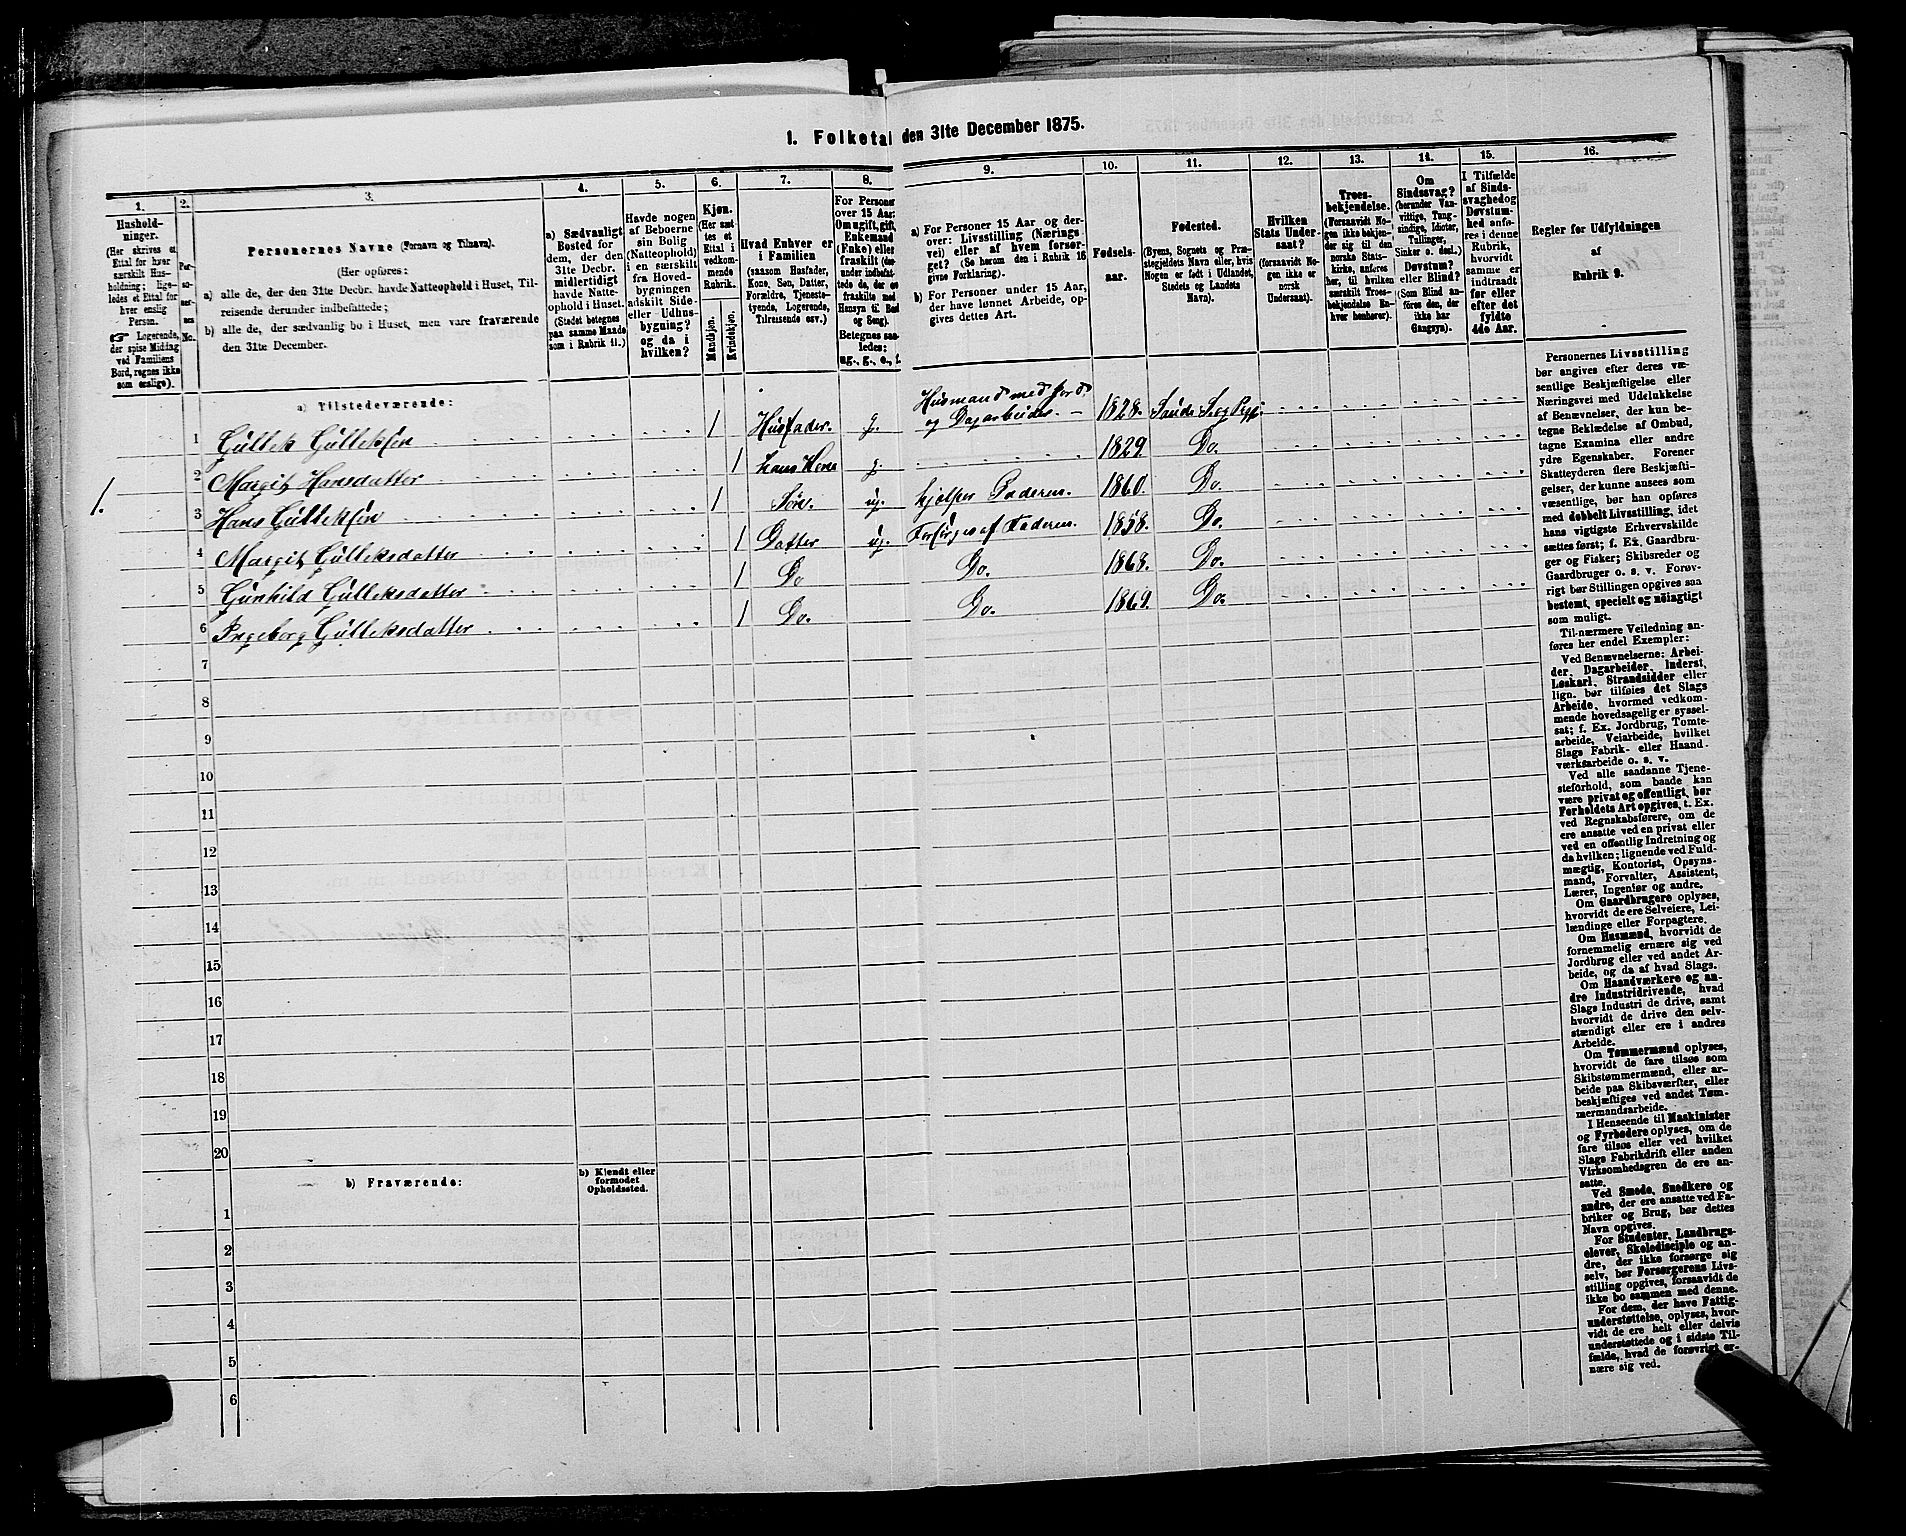 1. Folketal den 31te December 1875.
1.
2.
3.
4.
5.
6.
7.
8.
9.
10.
11.
12.
13.
14.
15.
16.
Hushold-
ninger.
(Her skrives et
Ettal for hver
særskilt Hus-
holdning; lige-
ledes et Ettal for
hver enslig
Person.
☞ Logerende,
der spise Middag
ved Familiens
Bord, regnes ikke
som enslige).
Per-
so-
ner-
nes
No.
Personernes Navne (Fornavn og Tilnavn).
(Her opføres:
a) alle de, der den 31te Decbr. havde Natteophold i Huset, Til-
reisende derunder indbefattede;
b) alle de, der sædvanlig bo i Huset, men vare fraværende
den 31te December.
a) Sædvanligt
Bosted for
dem, der den
31te Decbr.
midlertidigt
havde Natte-
ophold i Huset.
(Stedet betegnes
paa samme Maade
som i Rubrik 11.)
Havde nogen
af Beboerne
sin Bolig
(Natteophold)
i en særskilt
fra Hoved-
bygningen
adskilt Side-
eller Udhus-
bygning?
og da i
hvilken?
Kjøn.
(Her sæt-
tes et
Ettal i
vedkom-
mende
Rubrik.
Mandkjøn.
Kvindekjøn.
Hvad Enhver er
i Familien
(saasom Husfader,
Kone, Søn, Datter,
Forældre, Tjeneste-
tyende, Logerende,
Tilreisende osv.)
For Personer
over 15 Aar:
Om ugift, gift,
Enkemand
(Enke) eller
fraskilt (der-
under indbefat-
tede de, der ere
fraskilte med
Hensyn til Bord
og Seng).
Betegnes saa-
ledes:
ug., g., e., f.
a) For Personer 15 Aar og der-
over: Livsstilling (Nærings-
vei) eller af hvem forsør-
get? (Se herom den i Rubrik 16
givne Forklaring).
b) For Personer under 15 Aar,
der have lønnet Arbeide, op-
gives dettes Art.
Fødsels-
aar.
Fødested.
(Byens, Sognets og Præ-
stegjeldets Navn eller, hvis
Nogen er født i Udlandet,
Stedets og Landets
Navn).
Hvilken
Stats Under-
saat?
(forsaavidt No-
gen ikke er
norsk
Undersaat).
Troes-
bekjendelse.
(Forsaavidt No-
gen ikke bekjen-
der sig til den
norske Stats-
kirke, anføres
her, til hvilken
særskilt Troes-
bekjendelse En-
hver henhører).
Om
Sindssvag?
(herunder Van-
vittige, Tung-
sindige, Idioter,
Tullinger,
Sinker o. desl.)
Døvstum?
eller Blind?
(Som Blind an-
føres den, der
ikke har
Gangsyn).
I Tilfælde
af Sinds-
svaghed og
Døvstum-
hed anfø-
res i denne
Rubrik,
hvorvidt
samme er
indtraadt
før eller
efter det
fyldte
4de Aar.
Regler for Udfyldningen
af
Rubrik 9.
a) Tilstedeværende:
1 Gullek Gulleksen 1 Husfader. g. Husmand med Jord og Dagarbeider 1828. Saude Sog
2 Margit Hansdatter 1 hans Kone g. 1829. Do.
1.
3 Hans Gulleksen 1 Søn. ug. hjelper Faderen. 1860. Do.
4 Margit Gulleksdatter 1 Datter ug. Forsørges af Faderen. 1858. Do.
5 Gunhild Gulleksdatter 1 Do Do. 1868. Do.
6 Ingeborg Gulleksdatter 1 Do. Do. 1869. Do.
7
8
9
10
11
12
13
14
15
16
17
18
19
20
b) Fraværende:
b) Kjendt eller
formodet
Opholdssted.
1
2
3
4
5
6
Personernes Livsstilling
bør angives efter deres væ-
sentlige Beskjæftigelse eller
Næringsvei med Udelukkelse
af Benævnelser, der kun be-
tegne Beklædelse af Ombud,
tagne Examina eller andre
ydre Egenskaber. Forener
Skatteyderen flere Beskjæfti-
gelser, der kunne ansees som
væsentlige, bør han opføres
med dobbelt Livsstilling, idet
hans vigtigste Erhvervskilde
sættes først; f. Ex. Gaardbru-
ger og Fisker; Skibsreder og
Gaardbruger o. s. v. Forøv-
rigt bør Stillingen opgives saa
bestemt, specielt og nøiagtigt
som muligt.
Til nærmere Veiledning an-
føres her endel Exempler:
Ved Benævnelserne: Arbei-
der, Dagarbeider, Inderst,
Løskarl, Strandsidder eller
lign. bør tilføies det Slags
Arbeide, hvormed vedkom-
mende hovedsagelig er syssel-
sat; f. Ex. Jordbrug, Tomte-
arbeide, Veiarbeide, hvilket
Slags Fabrik- eller Haand-
værksarbeide o. s. v.
Ved alle saadanne Tjene-
steforhold, som baade kan
være privat og offentligt, bør
Forholdets Art opgives, t. Ex.
ved Regnskabsførere, om de
ere ansatte ved en privat eller
ved en offentlig Indretning og
da hvilken; lignende ved Fuld-
mægtig, Kontorist, Opsyns-
mand, Forvalter, Assistent,
Lærer, Ingeniør og andre.
Om Gaardbrugere oplyses,
hvorvidt de ere Selveiere, Lei-
lændinge eller Forpagtere.
Om Husmænd, hvorvidt de
fornemmelig ernære sig ved
Jordbrug eller ved andet Ar-
beide, og da af hvad Slags.
Om Haandværkere og an-
dre Industridrivende, hvad
Slags Industri de drive, samt
hvorvidt de drive den selv-
stændigt eller ere i andres
Arbeide.
Om Tømmermænd oplyses,
hvorvidt de fare tilsøs som
Skibstømmermænd, eller ar-
beide paa Skibsværfter, eller
beskjæftiges ved andet Tøm-
mermandsarbeide.
I Henseende til Maskinister
og Fyrbødere oplyses, om de
fare tilsøs eller ved hvilket
Slags Fabrikdrift eller anden
Virksomhedsgren de ere an-
satte.
Ved Smede, Snedkere og
andre, der ere ansatte ved Fa-
briker og Brug, bør dettes
Navn opgives.
For Studenter, Landbrugs-
elever, Skoledisciple og an-
dre, der ikke forsørge sig
selv, bør Forsørgerens Livs-
stilling opgives, forsaavidt de
ikke bo sammen med denne.
For dem, der have Fattig-
understøttelse, oplyses, hvor-
vidt de ere helt eller delvis
understøttede og i sidste Til-
fælde, hvad de forøvrigt er-
nære sig ved.